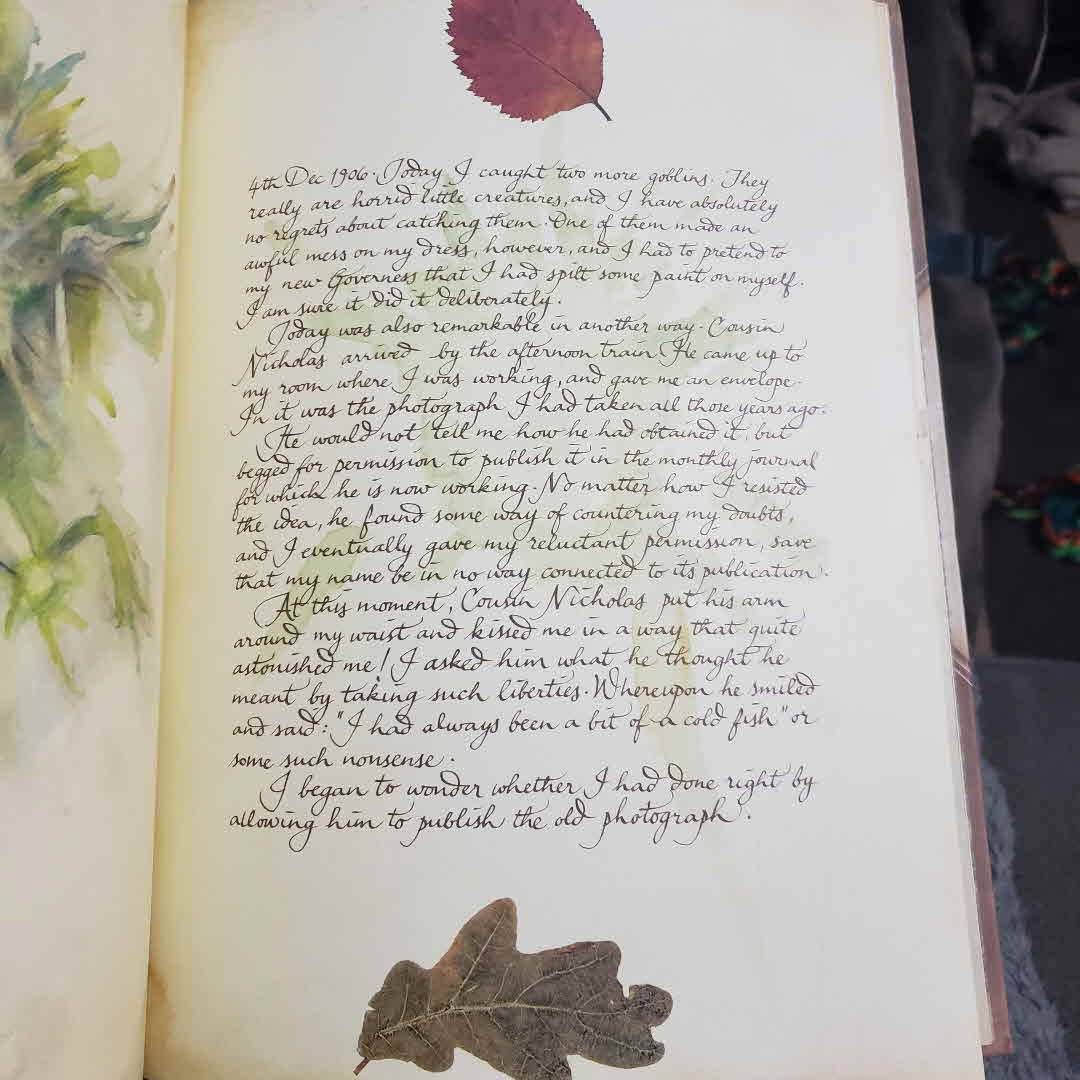 4th Dec 1906. Today I caught two more goblins. They
really are horrid little creatures, and I have absolutely
no regrets about catching them. One of them made an
awful mess on my dress, however, and I had to pretend to
my new Governess that I had spilt some paint on myself.
I am sure it did it deliberately.
Today was also remarkable in another way. Cousin
Nicholas arrived by the afternoon train. He came up to
my room where I was working, and gave me an envelope.
In it was the photograph I had taken all those years ago.
He would not tell me how he had obtained it, but
begged for permission to publish it in the monthly journal
for which he is now working. No matter how I resisted
the idea, he found some way of countering my doubts,
and I eventually gave my reluctant permission, save
that my name be in no way connected to its publication.
At this moment, Cousin Nicholas put his arm
around my waist and kissed me in a way that quite
astonished me! I asked him what he thought he
meant by taking such liberties. Whereupon he smiled
and said: "I had always been a bit of a cold fish" or
some such nonsense.
I began to wonder whether I had done right by
allowing him to publish the old photograph.